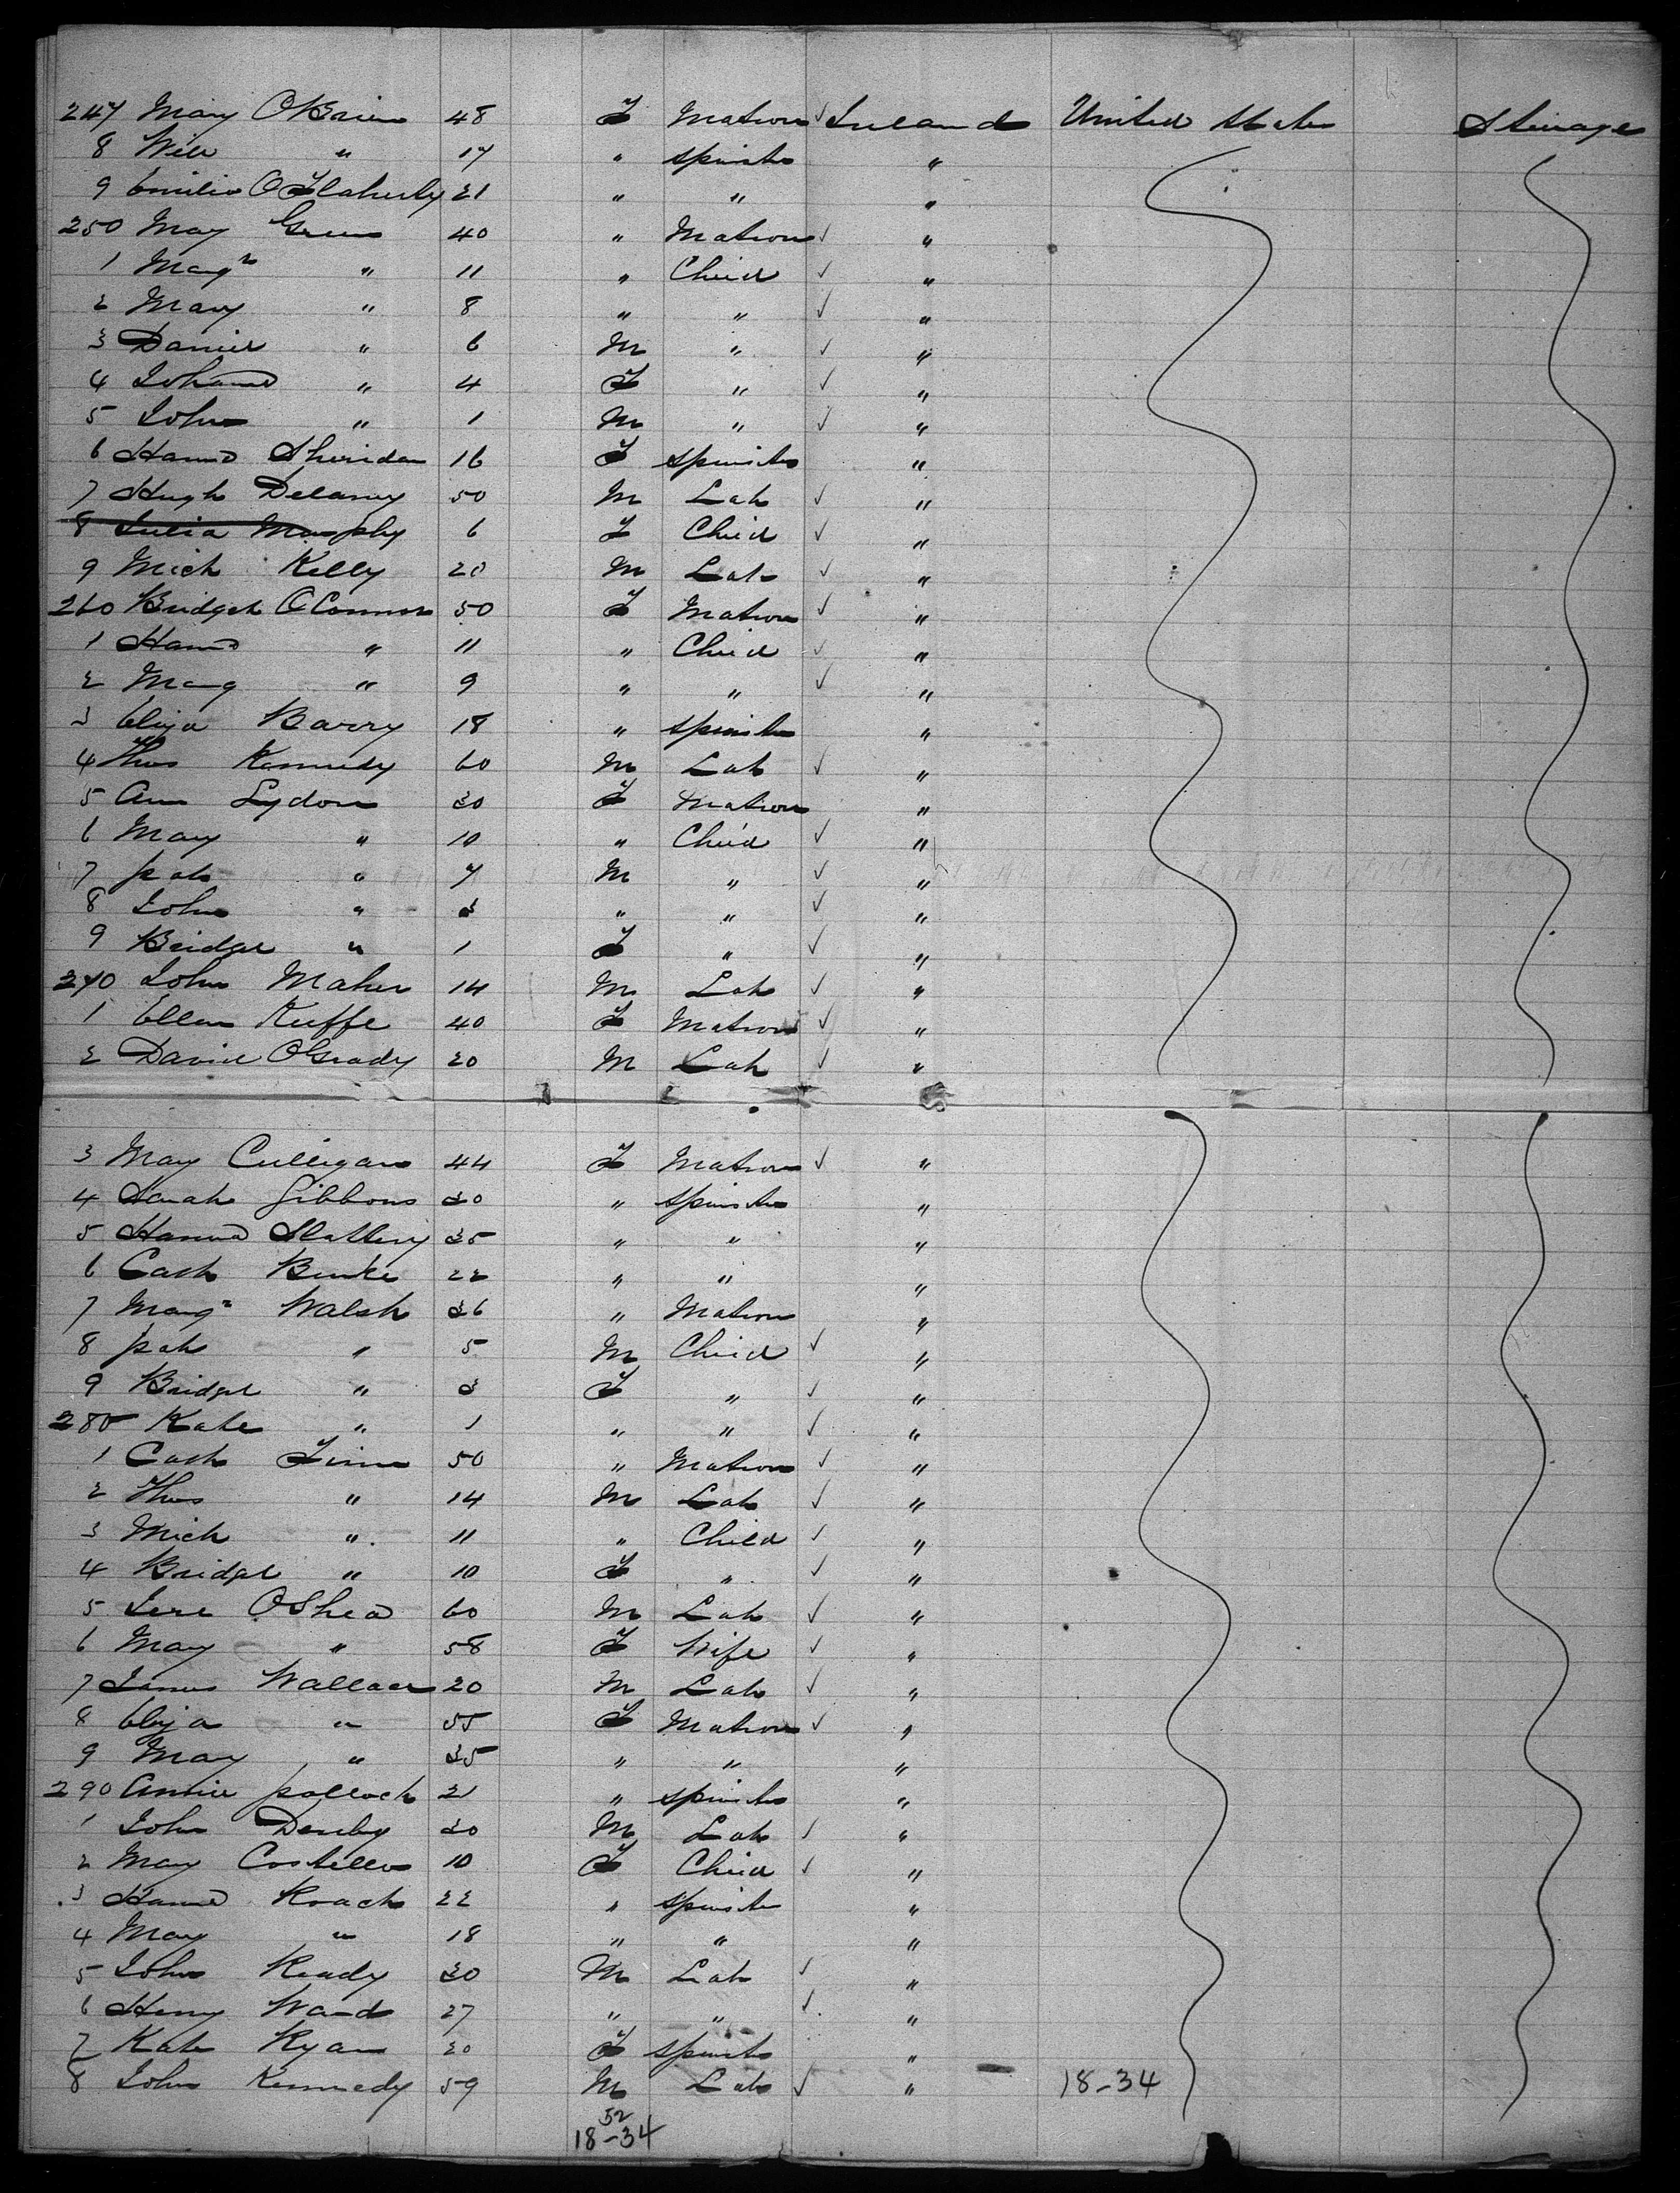 247 Mary OBrien 48 F Matron ✓ Ireland United States Steerage
8 " 17 " Spinster "
9 Emilie OFlaherty 21 " " "
250 Mary Green 40 " Matron ✓ "
1 Margt " 11 " Child ✓ "
2 Mary " 8 " " ✓ "
3 Daniel " 6 M " ✓ "
4 Johana " 4 F " ✓ "
5 John " 1 M " ✓ "
6 Hanna Sheridan 16 F Spinster "
7 Hugh Delaney 50 M Lab ✓ "
8 Julia Murphy 6 F Child ✓ "
9 Mich Kelly 20 M Lab ✓ "
260 Bridget OConnor 50 F Matron ✓ "
1 Hanna " 11 " Child ✓ "
2 Marg " 9 " " ✓ "
3 Eliza Barry 18 " Spinster "
4 Thos Kennedy 60 M Lab ✓ "
5 Ann Lydon 30 F Matron "
6 Mary " 10 " Child ✓ "
7 Pat " 7 M " ✓ "
8 John " 3 " " ✓ "
9 Bridget " 1 F " ✓ "
270 John Maher 14 M Lab ✓ "
1 Ellen Keeffe 40 F Matron ✓ "
2 David OGrady 20 M Lab ✓ "
3 Mary Culligan 44 F Matron ✓ "
4 Sarah Gibbons 30 " Spinster "
5 Hanna Slattery 35 " " "
6 Cath Burke 22 " " "
7 Margt Walsh 36 " Matron "
8 Pat " 5 M Child ✓ "
9 Bridget " 3 F " ✓ "
280 Kate " 1 " " ✓ "
1 Cath Finn 50 " Matron ✓ "
2 Thos " 14 M Lab ✓ "
3 Mich " 11 " Child ✓ "
4 Bridget " 10 F " ✓ "
5 Jere OShea 60 M Lab ✓ "
6 Mary " 58 F Wife ✓ "
7 James Wallace 20 M Lab ✓ "
8 Eliza " 55 F Matron ✓ "
9 Mary " 35 " " "
290 Annie Pollock 21 " Spinster "
1 John Denby 30 M Lab ✓ "
2 Mary Costello 10 F Child ✓ "
3 Hanna Roach 22 " Spinster "
4 Mary " 18 " " "
5 John Ready 30 M Lab ✓ "
6 Henry Ward 27 " " ✓ "
7 Kate Ryan 20 F Spinster "
8 John Kennedy 59 M Lab ✓ " 18-34
52
18-34